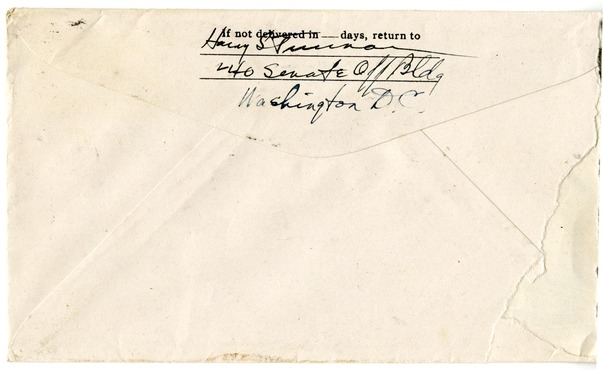 If not delivered in __ days, return to
Harry S Truman
240 Senate Off Bldg
Washington D.C.